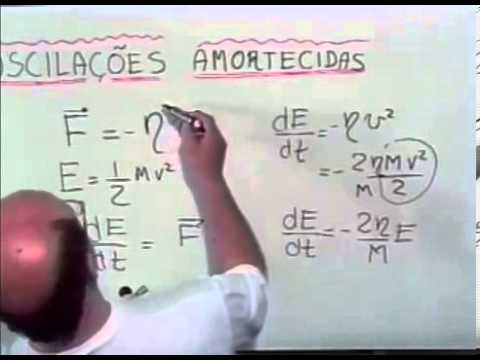 OSCILAÇÕES AMORTECIDAS
F⃗ = -η
E = 1/2 MV²
dE/dt = F⃗
dE/dt = -ηv²
= - 2ηMv²/M2
dE/dt = - 2η/M E